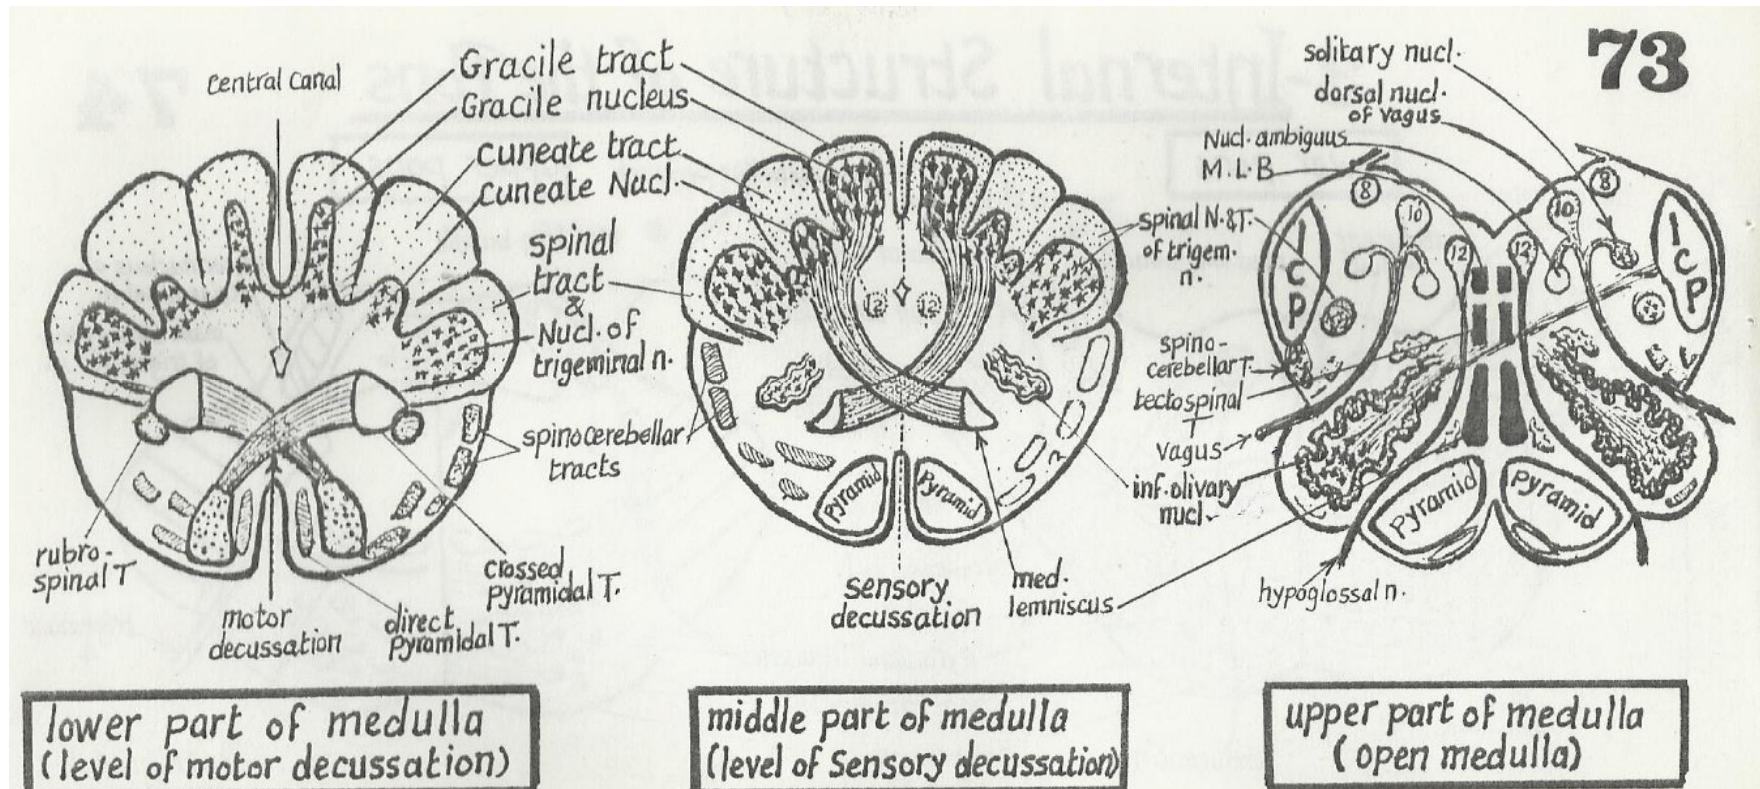 73
central canal
Gracile tract
Gracile nucleus
cuneate tract
cuneate Nucl.
spinal
tract
&
Nucl. of
trigeminal n.
spinocerebellar
tracts
rubro-
spinal T
motor
decussation
direct
pyramidal T.
crossed
pyramidal T.
lower part of medulla
(level of motor decussation)
12
12
Pyramid
Pyramid
sensory
decussation
med.
lemniscus
middle part of medulla
(level of Sensory decussation)
solitary nucl.
dorsal nucl.
of vagus
Nucl. ambiguus
M.L.B
spinal N.&T.
of trigem.
n.
spino-
cerebellar T.
tectospinal
T
vagus
inf. olivary
nucl.
hypoglossal n.
8
8
10
10
12
12
ICP
ICP
Pyramid
Pyramid
upper part of medulla
(open medulla)